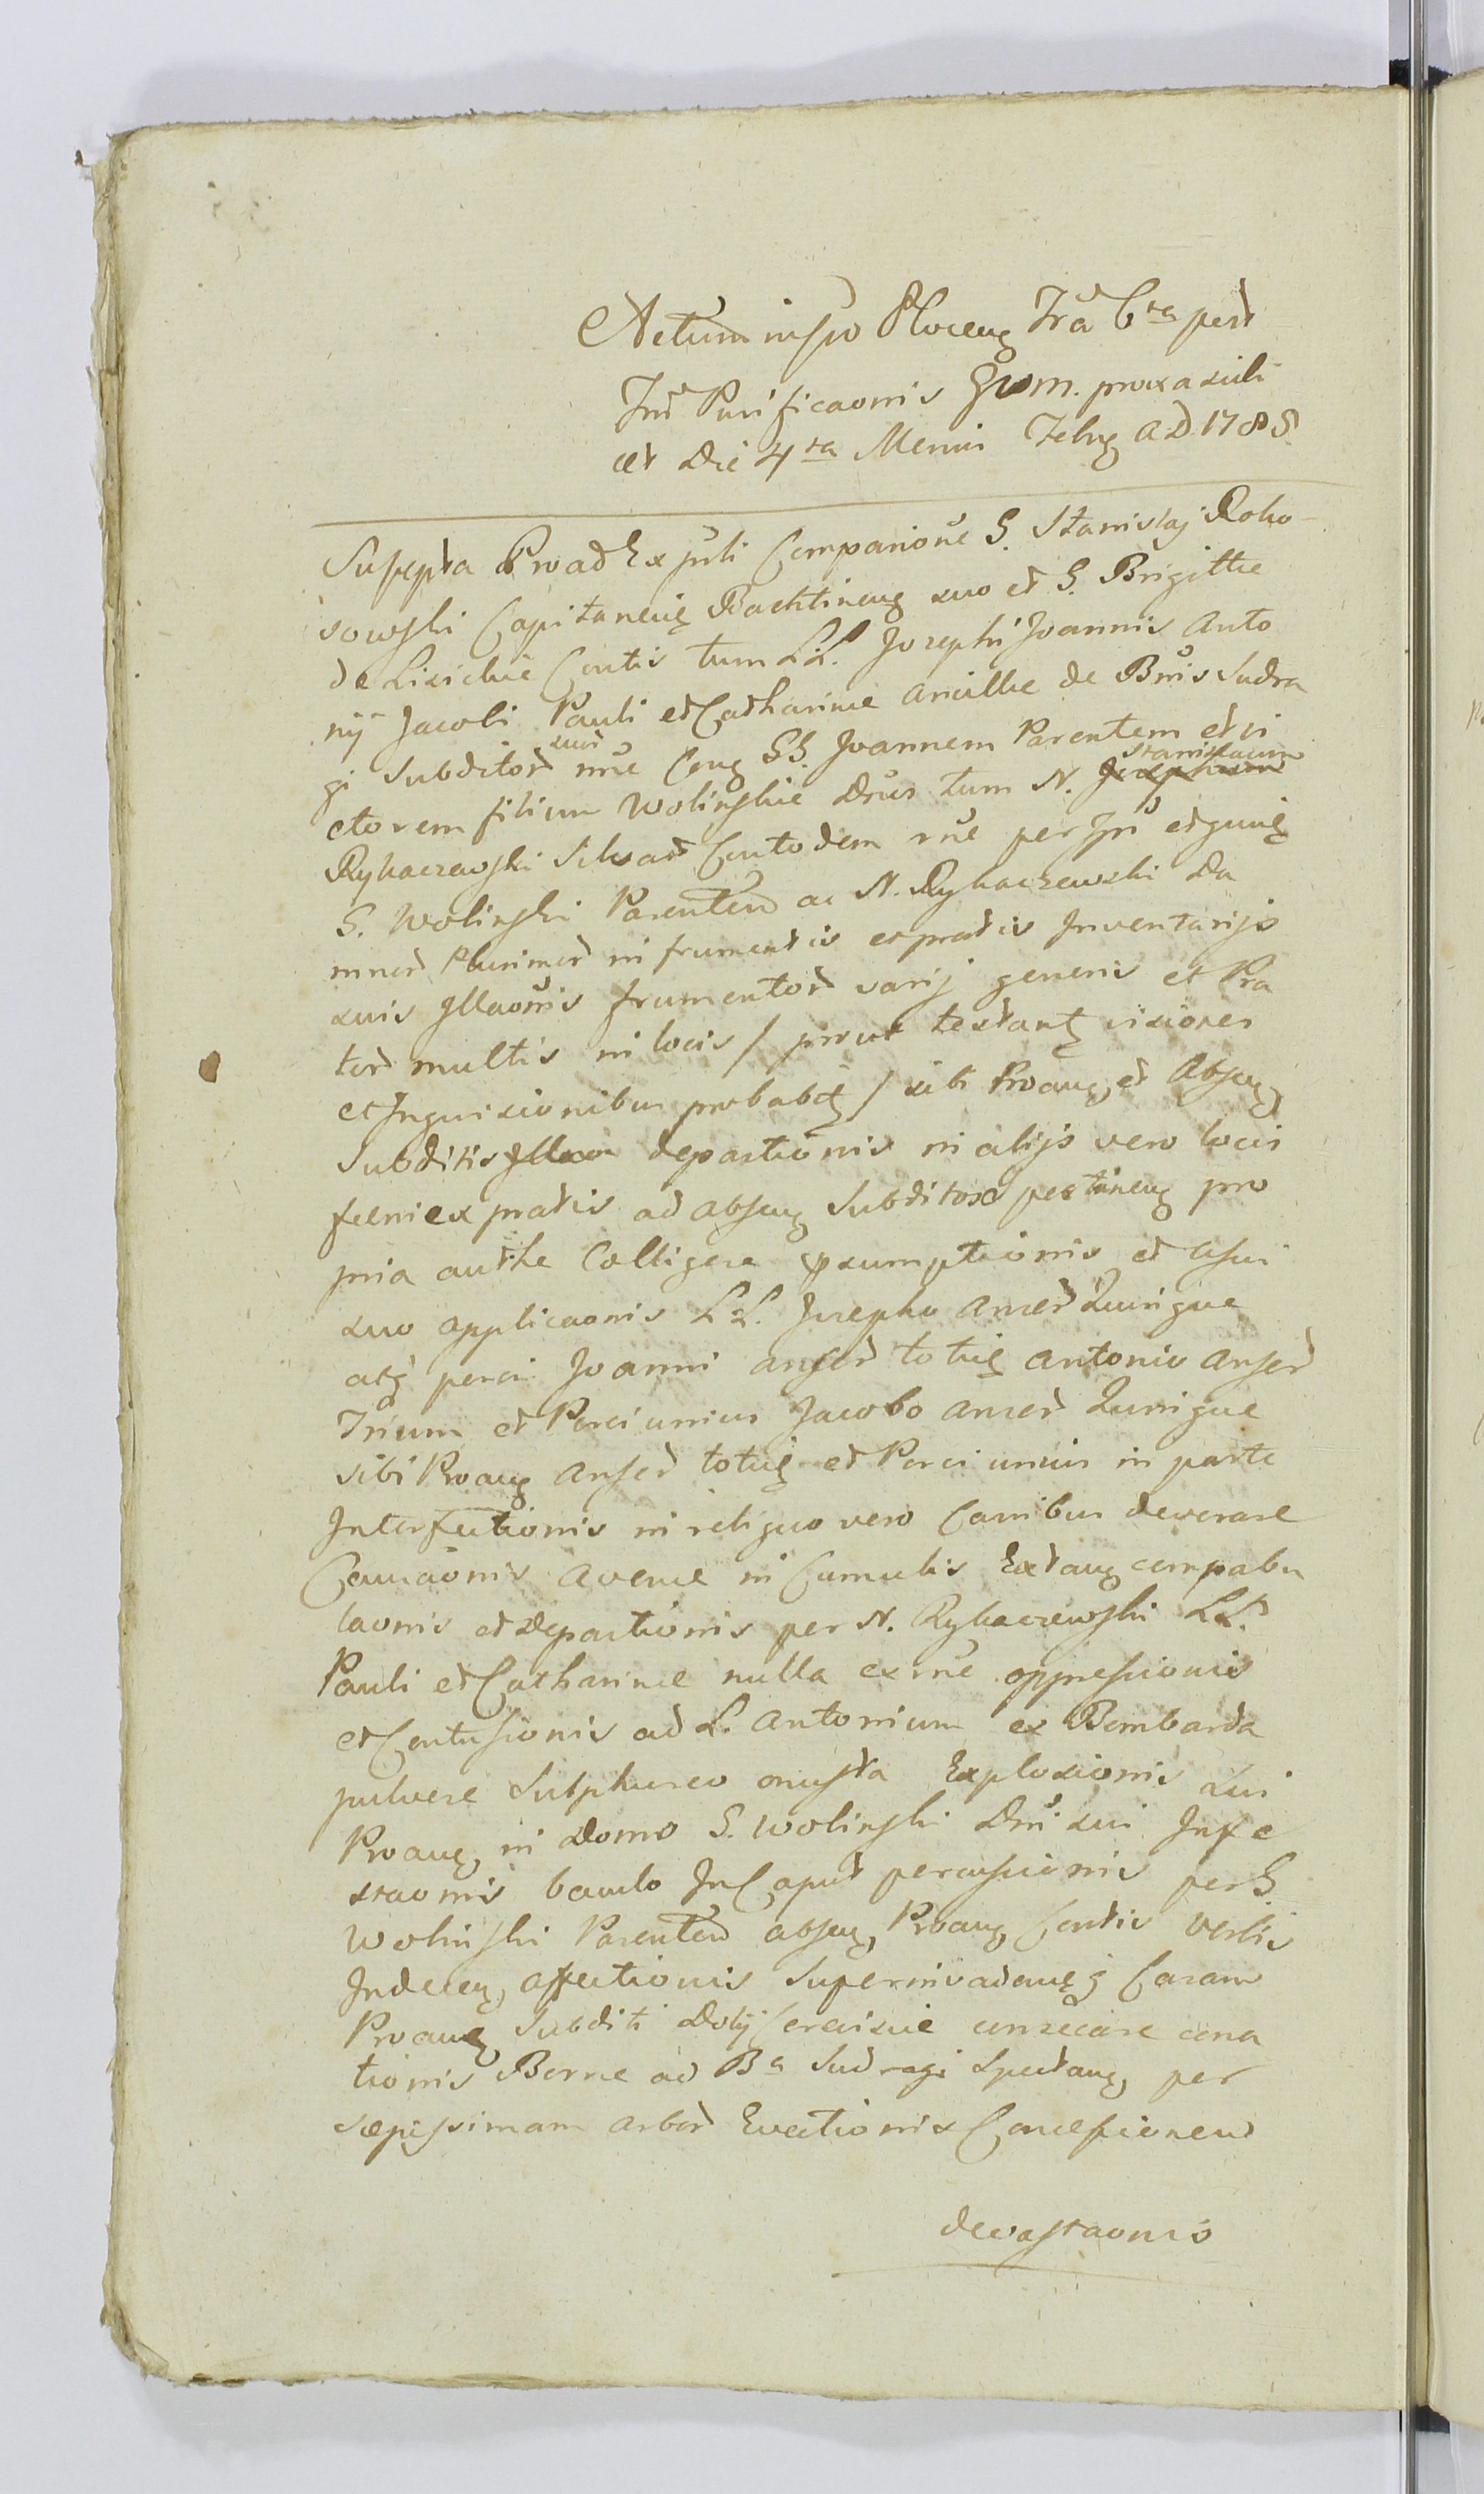 Actum in Plocen Fra 6ta post
Fm Purificaonis proxa
et Die 4ta Mensis Febr A.D. 1785
Suscepta Pro ad Ex Comparione G. Stanislaj Roko-
sowski Capitanei suo et G. Brigittæ
de Lisickie Contis tum L.L. Josephi Joannis Anto
nij Jacobi Pauli et Catharinæ Ancillæ de Bnis Sudra
gi Subditor suor nne Con GG. Joannem Parentem et Vi
ctorem filium Wolinskie Dnos tum N. Josephum Stanislaum
Rybaczewski Silvar Custodem rne per
G. Wolinski Parentem ac N. Rybaczewski Da
mnor Plurimor in frumentis et pratis Inventarijs
suis Illaonis frumentor varij generis et Pra
tor multis in locis / prout testant visiones
et Inquisionibus probabit / sibi Proan et Absen
Subditis Illaon depastionis in alijs vero locis
feni ex pratis ad absen Subditos pertinen pro
pria authe Colligere psumptionis et usui
suo applicaonis L.L. Josepho anser Quinque
atq porci Joanni anser totid Antonio anser
Trium et Porci unius Jacobo anser Quinque
sibi Proan anser totid et Porci unius in parte
Interfectionis in reliquo vero Canibus devorare
Causaonis Avenæ in Cumulis Extan compabu
laonis et Depastionis per N. Rybaczewski LL.
Pauli et Catharinæ nulla ex rne oppressionis
et Contusionis ad L. Antonium ex Bombarda
pulvere Sulphureo onusta Explosionis sui
Proan in Domo G. Wolinski Dni sui Infe
staonis baculo In Caput percussionis per G.
Wolinski Parentem absen Proan Contis Verbis
Indecen affectionis Superinvadendq Casam
Proan Subditi Dolij Cerevisiæ consecare cona
tionis Borræ ad Ba Sudragi Spectan per
sæpissimam arbor Evectionis Concessionem
devastaonis